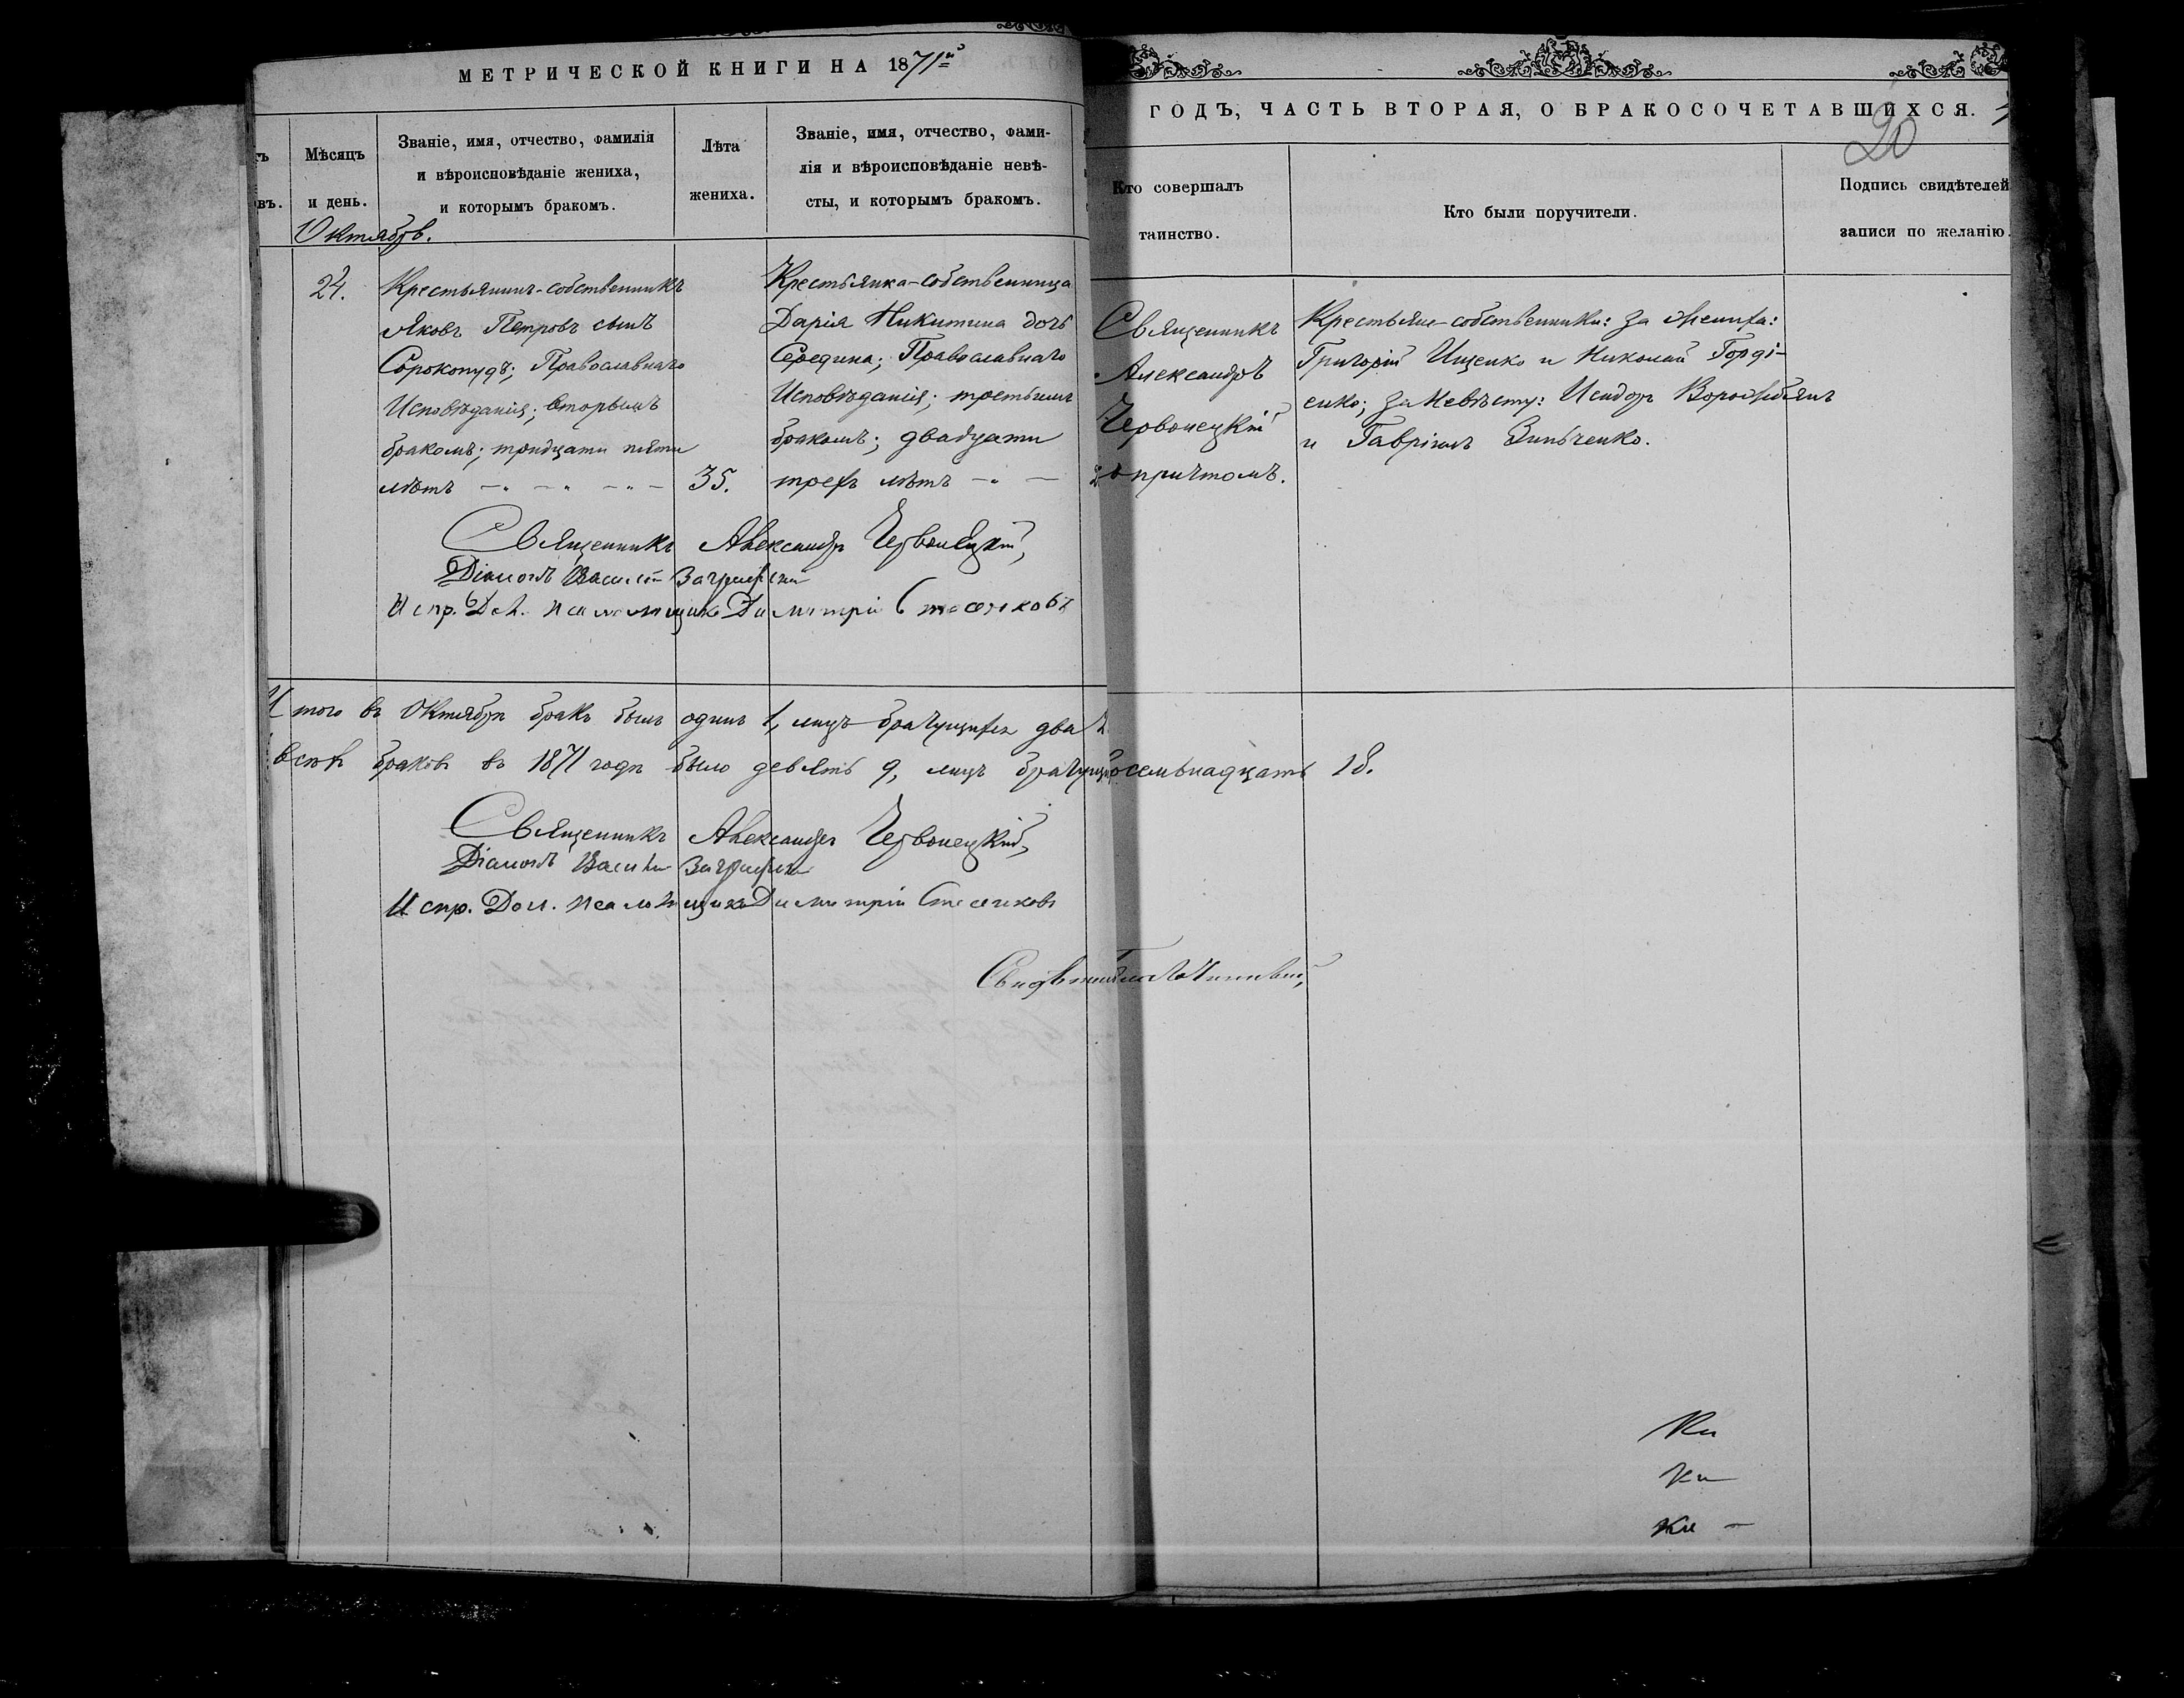 МЕТРИЧЕСКОЙ КНИГИ НА 1871й
ГОДЪ, ЧАСТЬ ВТОРАЯ, О БРАКОСОЧЕТАВШИХСЯ.
20
Мѣсяцъ
и день.
Званіе, имя, отчество, фамилія
и вѣроисповѣданіе жениха,
и которымъ бракомъ.
Лѣта
жениха.
Званіе, имя, отчество, фами-
лія и вѣроисповѣданіе невѣ-
сты, и которымъ бракомъ.
Кто совершалъ
таинство.
Кто были поручители.
Подпись свидѣтелей
записи по желанію.
Октябрь.
24.
Крестьянинъ-собственникъ
Яковъ Петровъ сынъ
Сорокопудъ; Православнаго
Исповѣданія; вторымъ
бракомъ; тридцати пяти
лѣтъ
35.
Крестьянка-собственница
Дарія Никитина дочь
Середина; Православнаго
Исповѣданія; третьимъ
бракомъ; двадцати
трехъ лѣтъ
Священникъ
Александръ
Червонецкій
съ причтомъ.
Крестьяне-собственники: за жениха:
Григорій Ищенко и Николай Горді-
енко; за невѣсту: Исидоръ Ворожбянъ
и Гавріилъ Зинченко.
Священникъ Александръ Червонецкій,
Діаконъ Василій
Испр. Дол. псаломщика Димитрій Стесенковъ
Итого въ Октябрѣ бракъ былъ одинъ 1, лицъ брачущихся два 2
всѣхъ браковъ въ 1871 годѣ было девять 9, лицъ брачущихся осемьнадцать 18.
Священникъ Александръ Червонецкій,
Діаконъ Василій
Испр. Дол. псаломщика Димитрій Стесенковъ